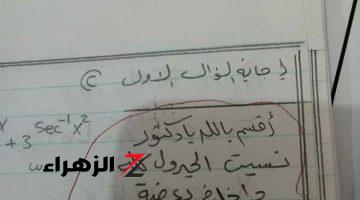 إجابة السؤال الأول
+ 3 sec⁻¹ x²
أقسم بالله يا دكتور
نسيت الجدول
الزهراء